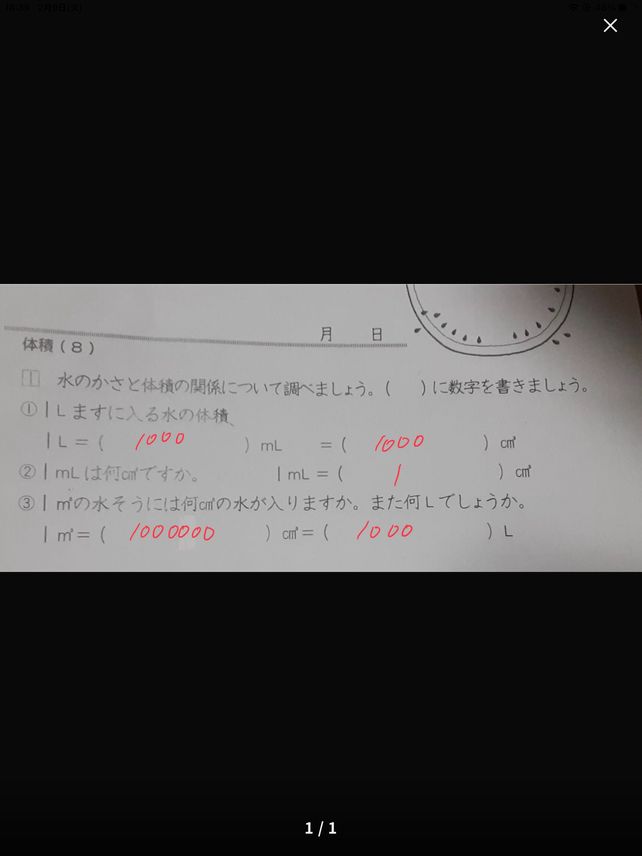 月 日
体積(8)
1 水のかさと体積の関係について調べましょう。( )に数字を書きましょう。
①1Lますに入る水の体積、
1L=( 1000 )mL =( 1000 )㎤
②1mLは何㎤ですか。 1mL=( 1 )㎤
③1㎥の水そうには何㎤の水が入りますか。また何Lでしょうか。
1㎥=( 1000000 )㎤=( 1000 )L
1 / 1